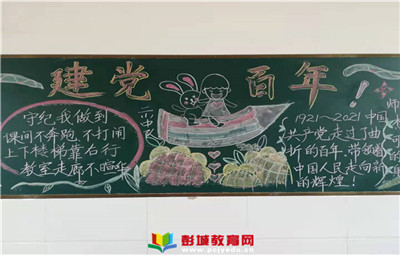 建党百年!
守纪我做到
课间不奔跑 不打闹
上下楼梯靠右行
教室走廊不喧华
二小中队
1921~2021中国
共产党走过了曲
折的百年,带领着
中国人民走向新
的辉煌!
师
彭城教育网